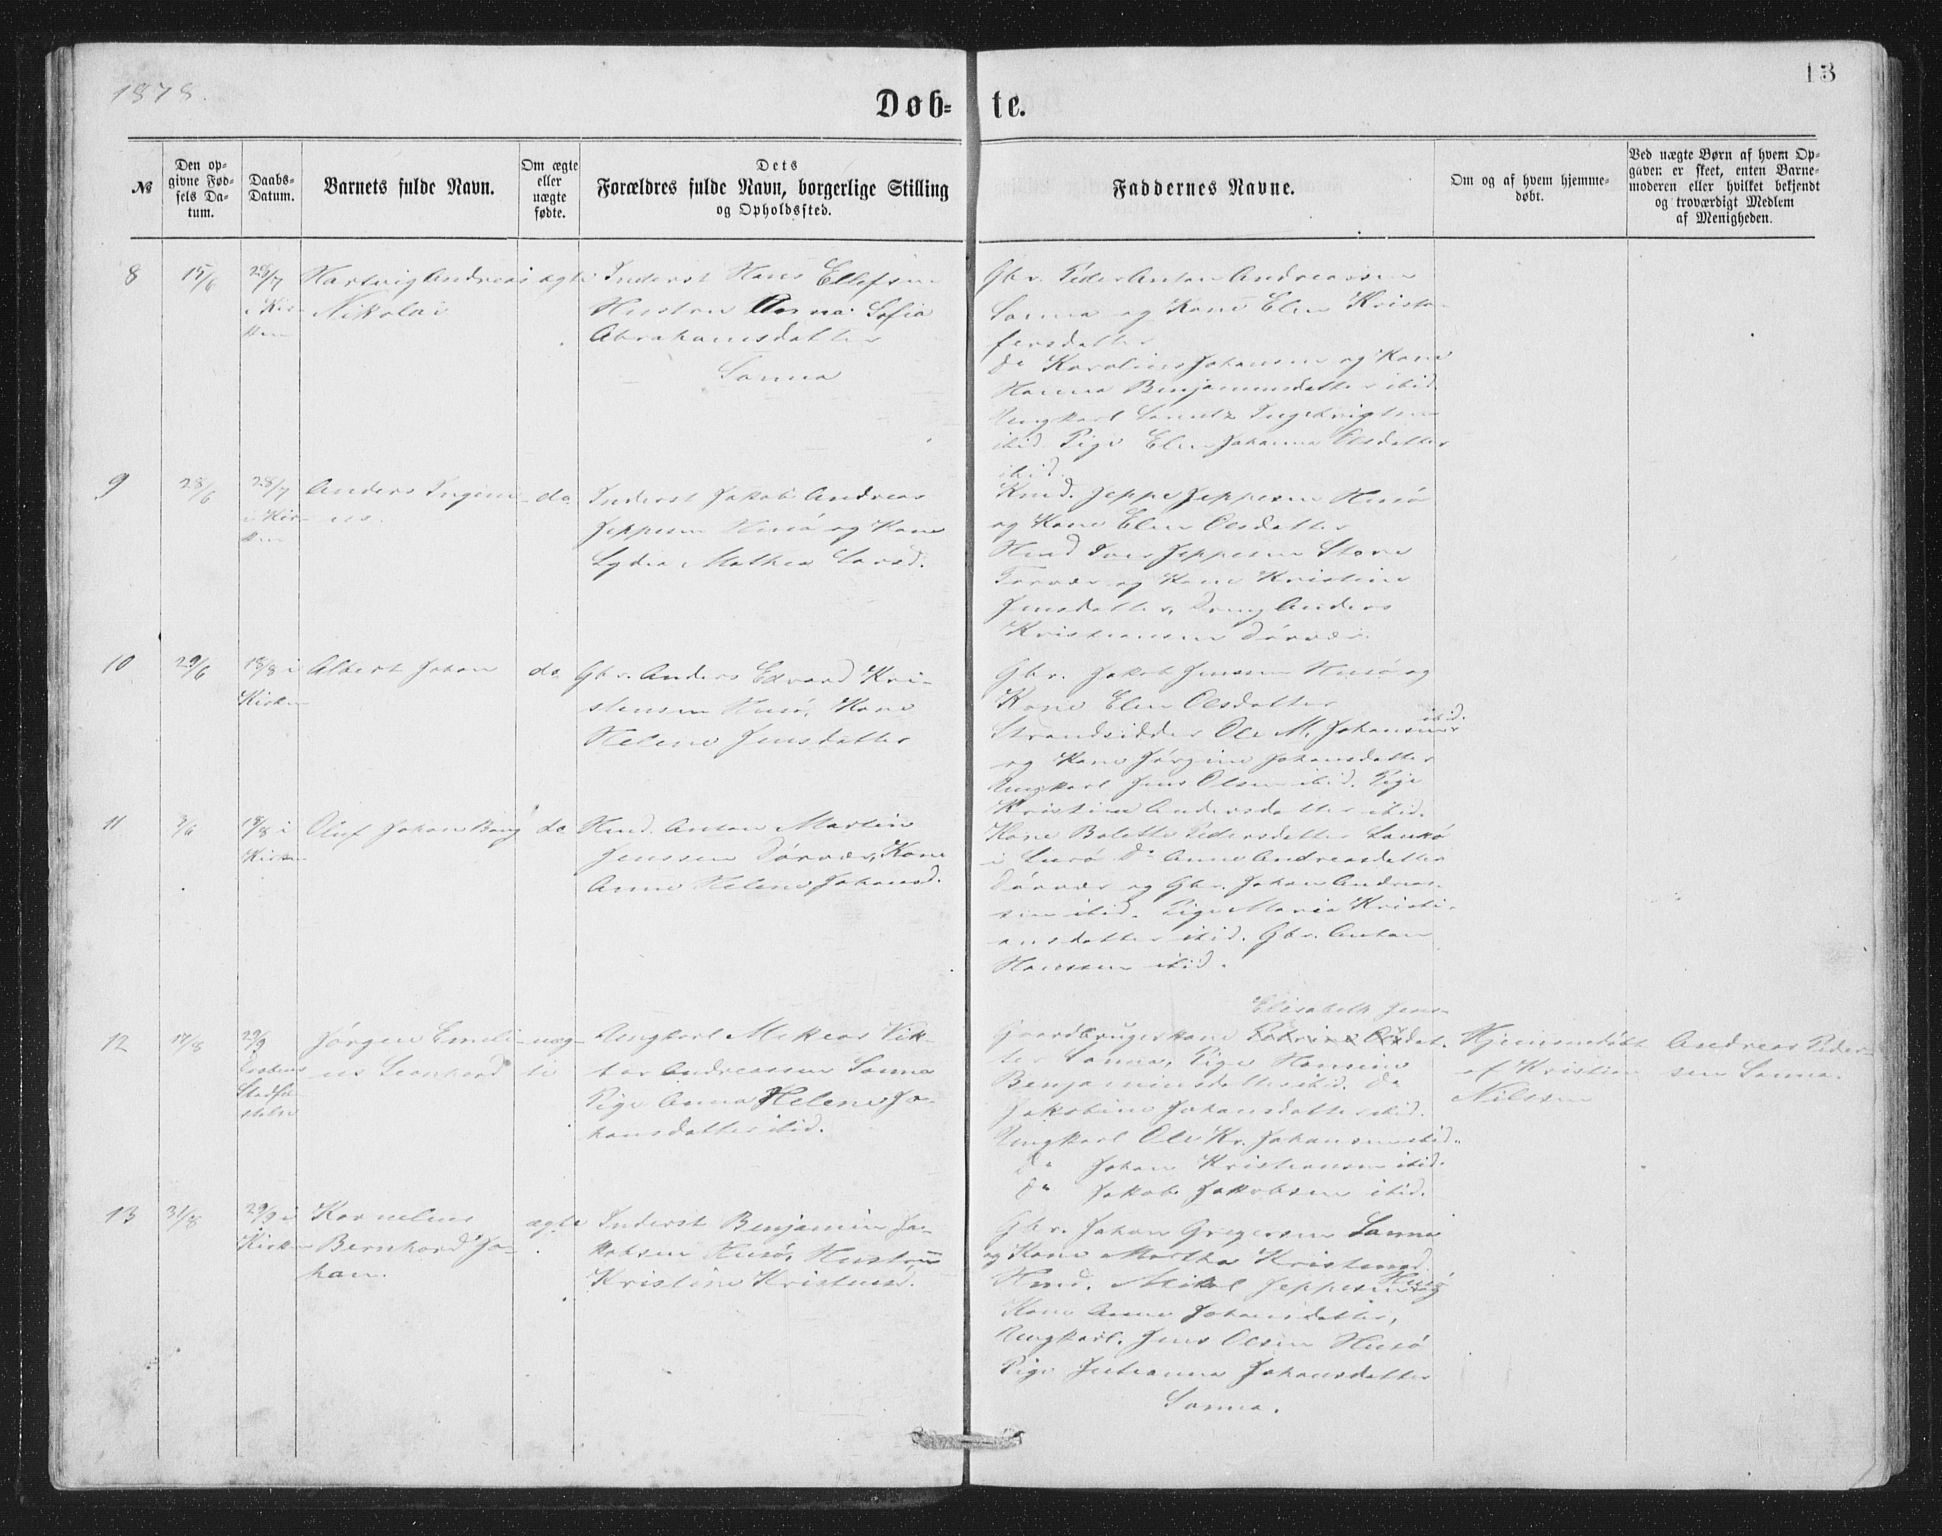 1878.
13
Døb- te.
№
Den op-
givne Fød-
sels Da-
tum.
Daabs-
Datum.
Barnets fulde Navn.
Om ægte
eller
uægte
fødte.
Dets
Forældres fulde Navn, borgerlige Stilling
og Opholdssted.
Faddernes Navne.
Om og af hvem hjemme-
døbt.
Ved uægte Børn af hvem Op-
gaven er skeet, enten Barne-
moderen eller hvilket bekjendt
og troværdigt Medlem
af Menigheden.
8
15/6
28/7
i Kir-
ken
Hartvig Andreas
Nikolai
ægte
Inderst Hans Ellefsen
Hustru Anna Sofia
Abrahamsdatter
Sanna
Gbr. Peder Anton Andreassen
Sanna og Kone Elen Kristo-
fersdatter
do Karolius Johansen og Kone
Hanna Benjaminsdatter ibid
Ungkarl Ingebrigtsen
ibid Pige Elen Johanna Olsdatter
ibid.
9
28/6
28/7
i Kir-
ken
Anders Ingini-
us.
do.
Inderst Jakob Andreas
Jeppesen Husø og Kone
Lydia Mathea Larsd.
Kmd. Jeppe Jeppesen Husø
og Kone Elen Olsdatter
Hmd Iver Jeppesen Store
og Kone Kristine
Jensdatter, Dreng Anders
Kristiansen Dørvær.
10
29/6
18/8 i
Kirken
Albert Johan
do.
Gbr. Anders Edvard Kri-
stensen Husø, Kone
Helene Jensdatter
Gbr. Jakob Jenssen Husø og
Kone Elen Olsdatter
Strandsidder Ole M. Johansen ibid.
og Kone Jørgine Johansdatter
Ungkarl Jens Olsen ibid. Pige
Kristina Andersdatter ibid.
11
3/6
18/8 i
Kirken
Oluf Johan Bang
do
Hmd. Anton Martin
Jenssen Dørvær, Kone
Anne Helene Johansd.
Kone Bolette Pedersdatter
i Lurø Do Anne Andreasdatter
Dørvær og Gbr. Johan Andreas-
sen ibid. Pige Maria Kristi-
ansdatter ibid. Gbr. Anton
Hanssen ibid.
12
17/8
29/9
Daabens
Stadfæ-
stelse
Jørgen Emili-
us Leonhard
uæg-
te
Ungkarl Mekeas Vik-
tor Andreassen Sanna
Pige Anna Helene Jo-
hansdatter ibid.
Elisabeth Jens-
Gaardbrugerkone Petrine Olsdat-
ter Sanna, Pige Hansine
Benjaminsdatter ibid. Do
Jakobine Johansdatter ibid.
Ungkarl Ole Kr. Johansen ibid.
do Johan Kristiansen ibid.
do Jakob Jakobsen ibid.
Hjemmedøbt
af Kristian
Nilssen
Andreas Peder-
sen Sanna.
13
31/8
29/9 i
Kirken
Kornelius
Bernhard Jo-
han.
ægte
Inderst Benjamin Ja-
kobsen Husø, Hustru
Kristine Kristensd.
Gbr. Johan Gregersen Sanna
og Kone Martha Kristensd.
Hmd. Mikal Jeppesen Husø og
Kone Anne Johansdatter,
Ungkarl. Jens Olsen Husø
Pige Julianna Johansdatter
Sanna.